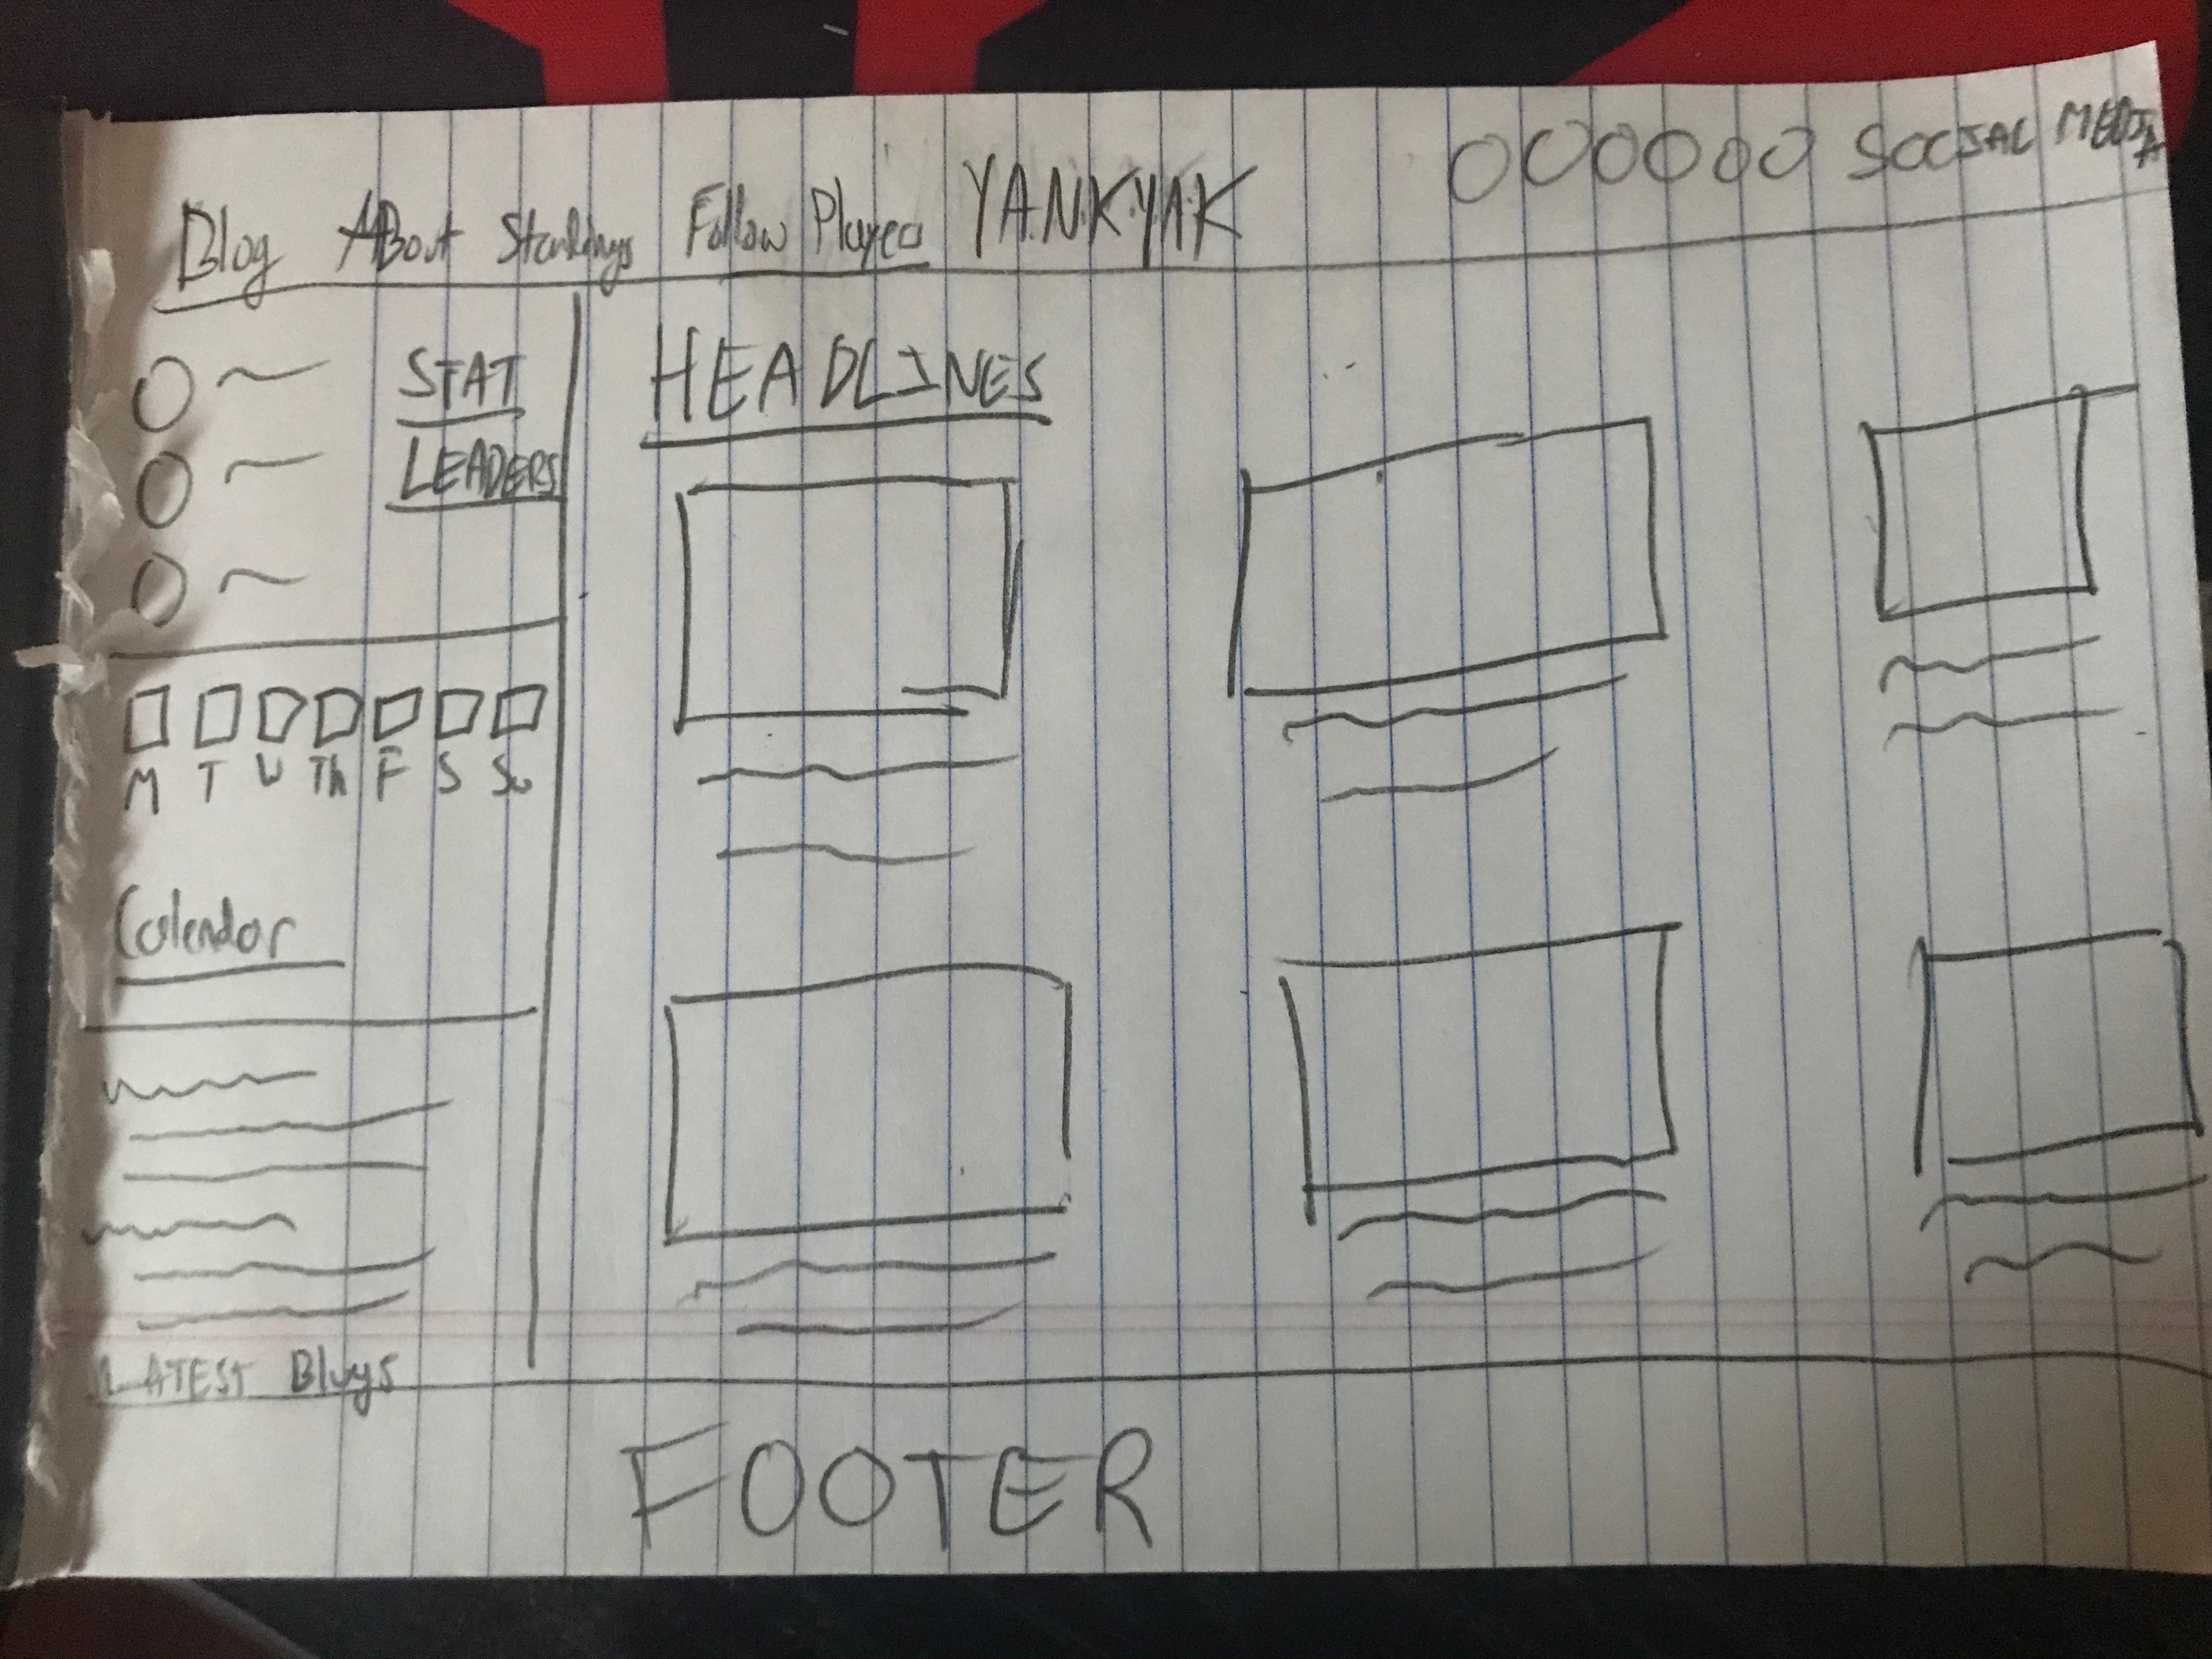 Blog About Standings Follow Players YANKYAK
SOCIAL MEDIA
STAT
LEADERS
HEADLINES
M T W Th F S Su
Calendar
LATEST Blogs
FOOTER